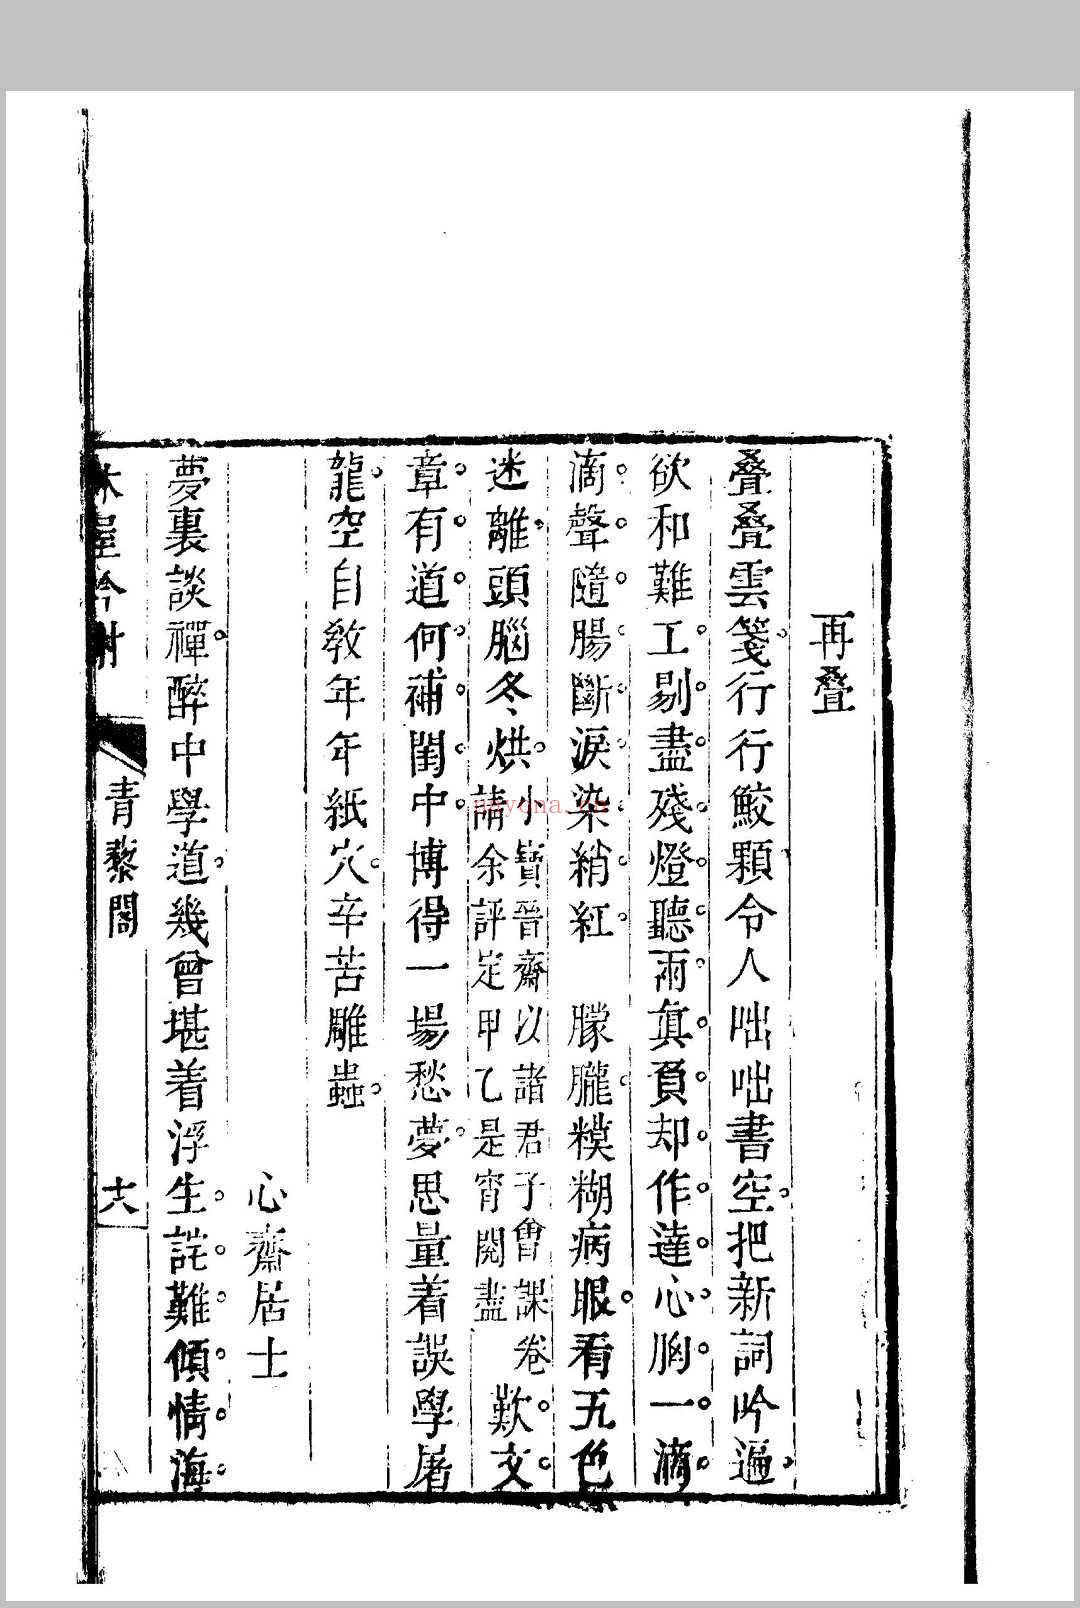 再叠
叠叠雲箋行行鮫顆令人咄咄書空把新詞吟遍
欲和難工剔盡殘燈聽雨真負却作達心胸一滴
滴聲隨腸斷淚染綃紅　朦朧糢糊病眼看五色
迷離頭腦冬烘
小寶晉齋以諸君子會課卷
請余評定甲乙是宵閱盡
歎文
章有道何補閨中博得一場愁夢思量着誤學屠
龍空自教年年紙穴辛苦雕蟲
心齋居士
夢裏談禪醉中學道幾曾堪着浮生詫難傾情海
林屋吟榭
青藜閣
十八